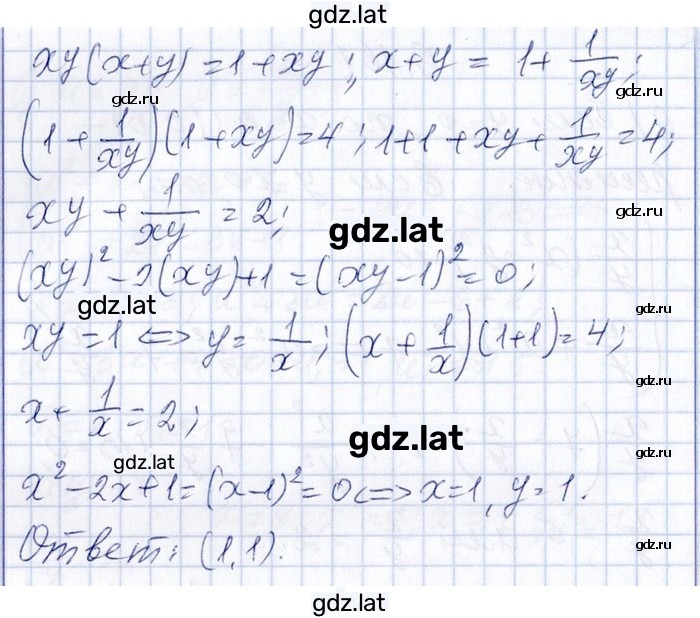 gdz.lat
xy(x+y) = 1 + xy; x+y = 1 + 1/xy;
gdz.ru
gdz.ru
(1 + 1/xy)(1+xy) = 4; 1+1+xy+1/xy = 4;
gdz.ru
gdz.ru
xy + 1/xy = 2;
gdz.ru
gdz.lat
(xy)² - 2(xy)+1 = (xy-1)² = 0;
gdz.lat
xy = 1 <=> y = 1/x; (x + 1/x)(1+1) = 4;
gdz.ru
x + 1/x = 2;
gdz.lat
gdz.lat
gdz.ru
x² - 2x + 1 = (x-1)² = 0 <=> x=1, y=1.
Ответ: (1,1).
gdz.ru
gdz.lat